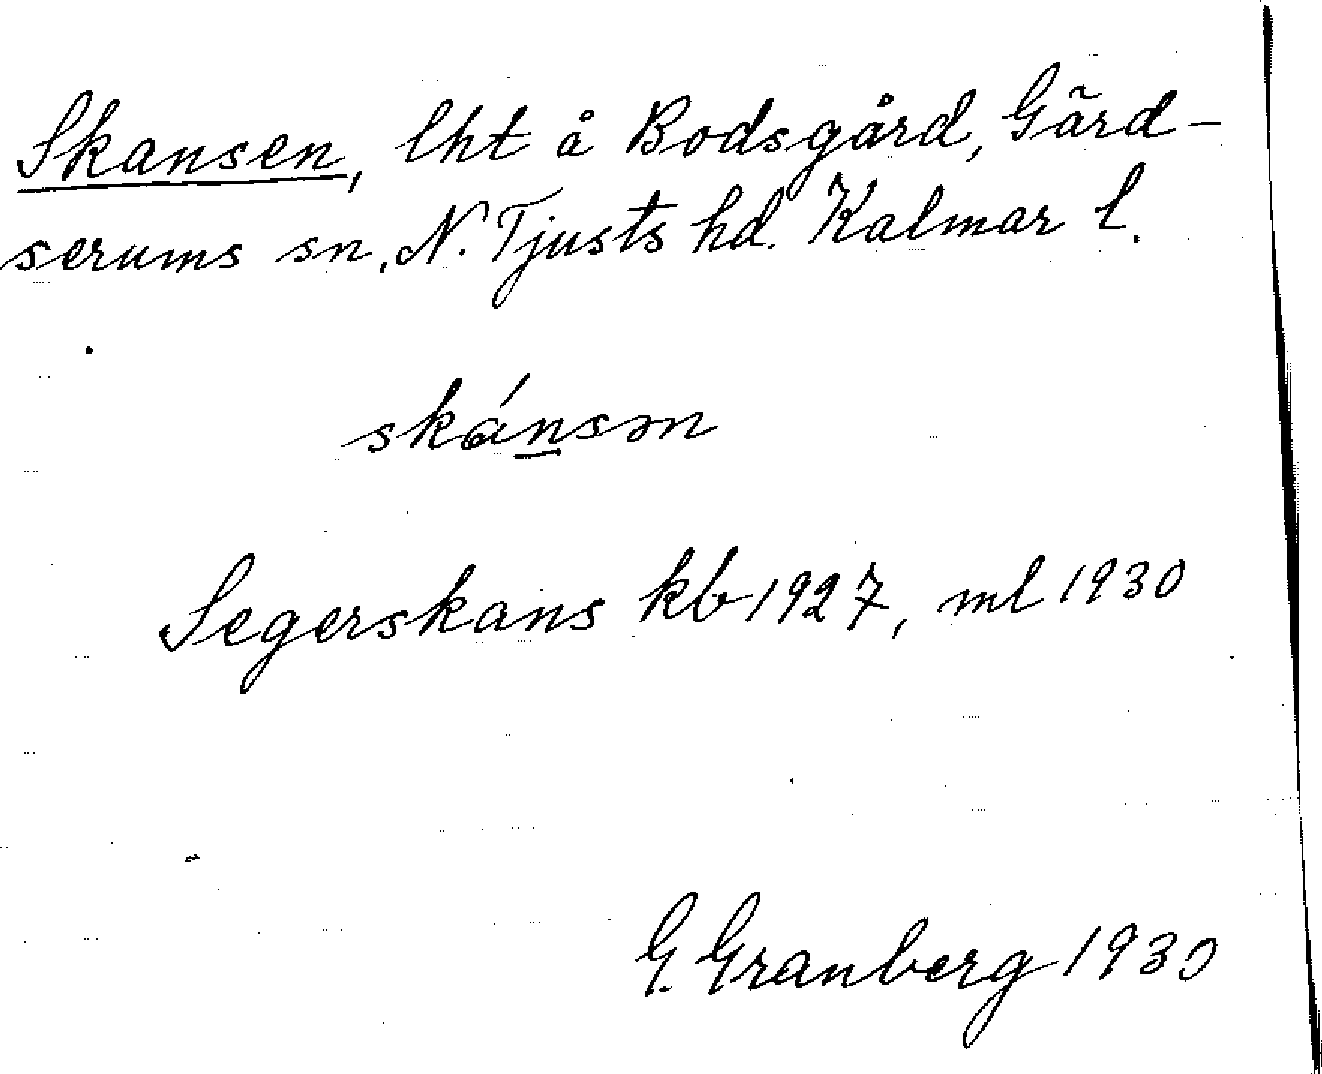 Skansen, lht å Bodsgård, Gärd-
serums sn, N. Tjusts hd. Kalmar l.
skánsən
Segerskans kb 1927, ml 1930
G. Granberg 1930